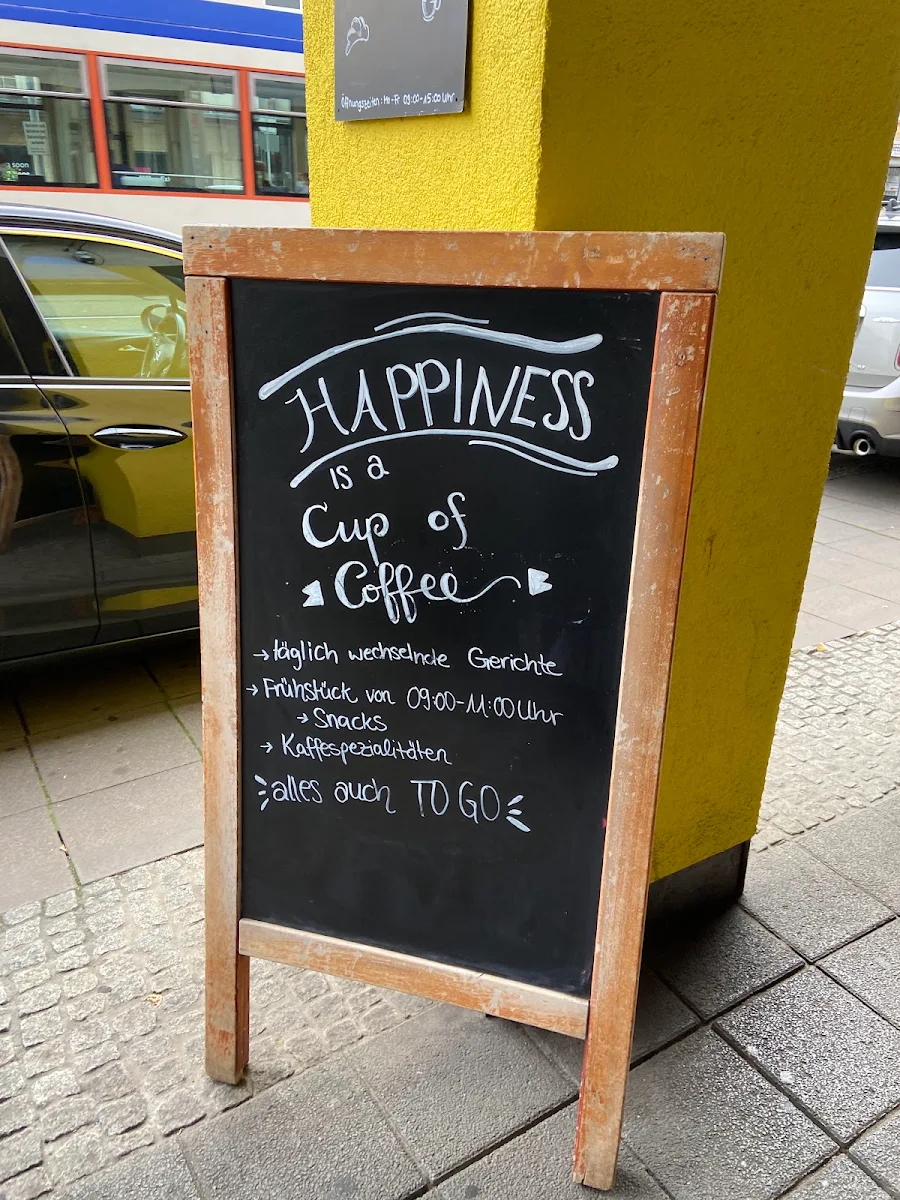 Öffnungszeiten: Mo-Fr 09:00-15:00 Uhr
HAPPINESS
is a
Cup of
Coffee
→ täglich wechselnde Gerichte
→ Frühstück von 09:00-11:00 Uhr
→ Snacks
→ Kaffespezialitäten
alles auch TO GO